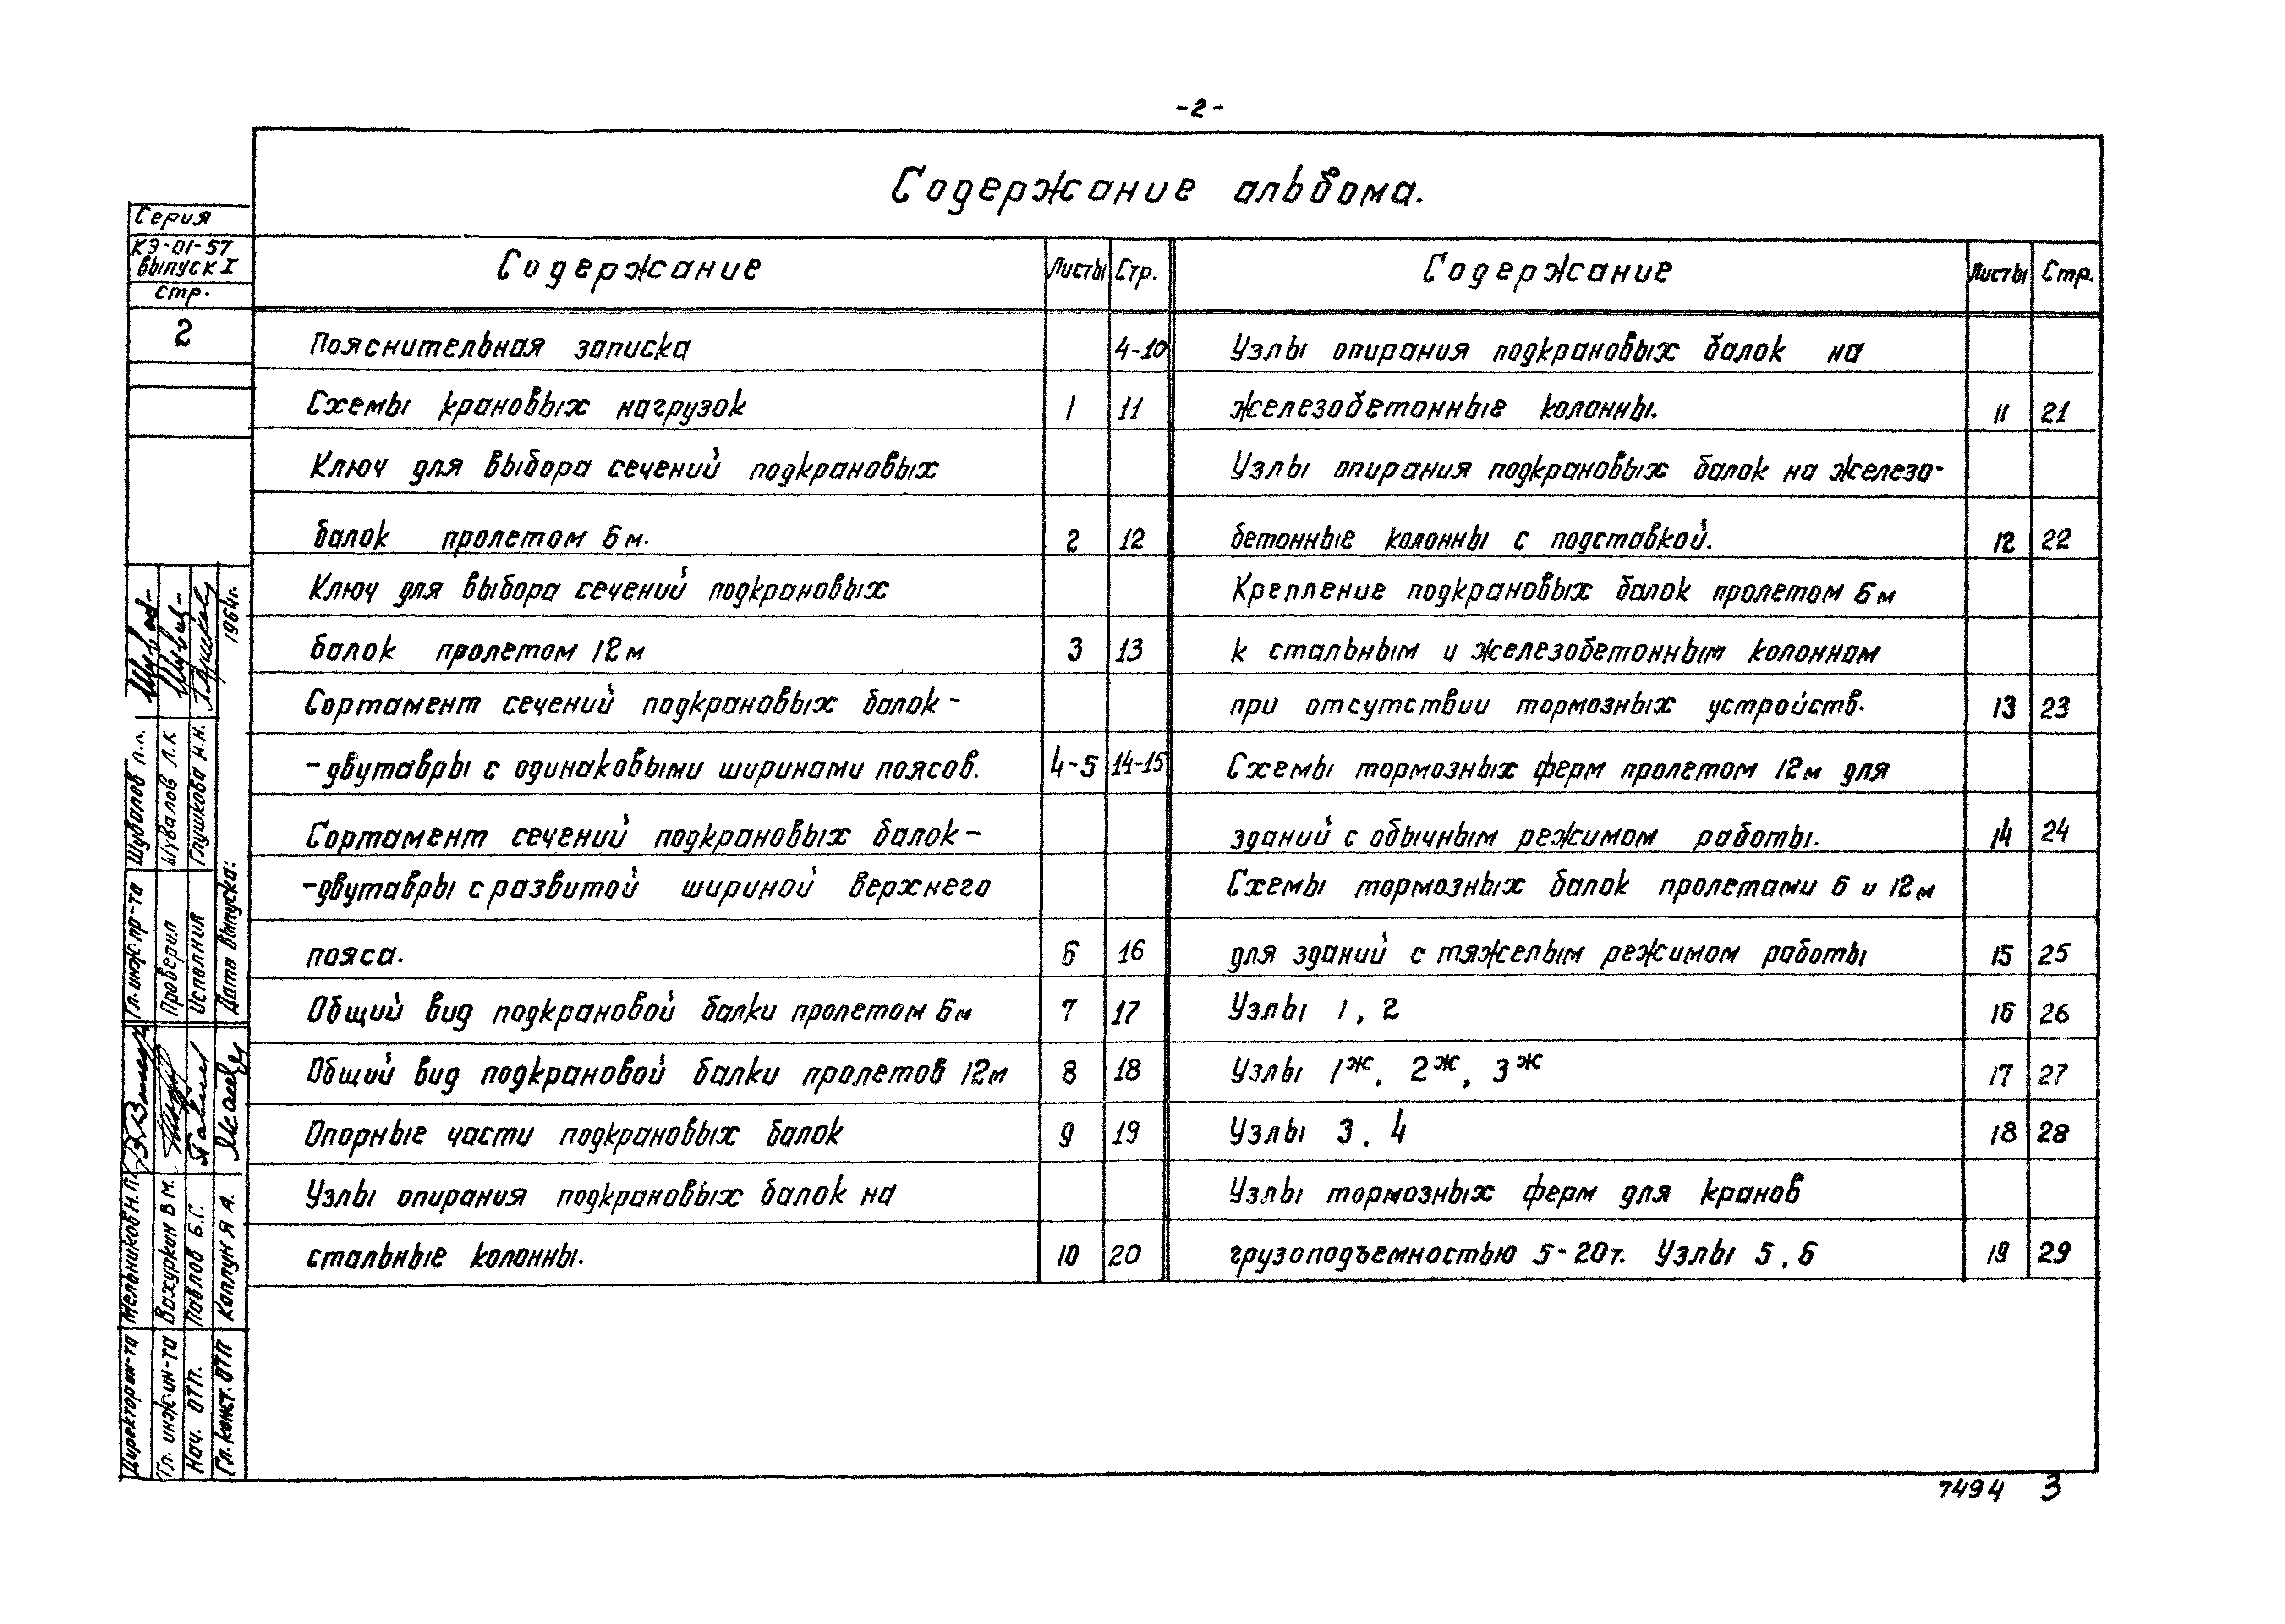 -2-
Содержание альбома.
Серия
КЭ-01-57
выпуск I
стр.
2
Содержание Листы Стр.
Пояснительная записка 4-10
Схемы крановых нагрузок 1 11
Ключ для выбора сечений подкрановых
балок пролетом 6м. 2 12
Ключ для выбора сечений подкрановых
балок пролетом 12м 3 13
Сортамент сечений подкрановых балок-
-двутавры с одинаковыми ширинами поясов. 4-5 14-15
Сортамент сечений подкрановых балок-
-двутавры с развитой шириной верхнего
пояса. 6 16
Общий вид подкрановой балки пролетом 6м 7 17
Общий вид подкрановой балки пролетов 12м 8 18
Опорные части подкрановых балок 9 19
Узлы опирания подкрановых балок на
стальные колонны. 10 20
Содержание Листы Стр.
Узлы опирания подкрановых балок на
железобетонные колонны. 11 21
Узлы опирания подкрановых балок на железо-
бетонные колонны с подставкой. 12 22
Крепление подкрановых балок пролетом 6м
к стальным и железобетонным колоннам
при отсутствии тормозных устройств. 13 23
Схемы тормозных ферм пролетом 12м для
зданий с обычным режимом работы. 14 24
Схемы тормозных балок пролетами 6 и 12м
для зданий с тяжелым режимом работы 15 25
Узлы 1, 2 16 26
Узлы 1ж, 2ж, 3ж 17 27
Узлы 3, 4 18 28
Узлы тормозных ферм для кранов
грузоподъемностью 5-20т. Узлы 5, 6 19 29
Директор ин-та Мельников Н.П.
Гл. инж. ин-та Вахуркин В М.
Нач. ОТП. Павлов Б.Г.
Гл. конст. ОТП Каплун Я А.
Гл. инж. пр-та Шувалов Л.Л.
Проверил Шувалов Л.К
Исполнил Глушкова Н.Н.
Дата выпуска: 1964г.
7494 3